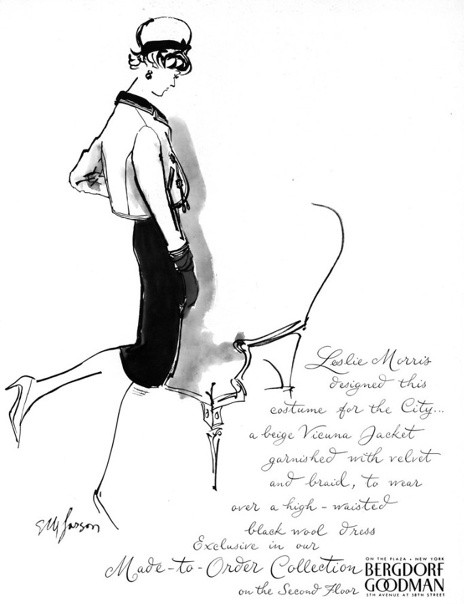 Leslie Morris
designed this
costume for the City...
a beige Vicuna Jacket
garnished with velvet
and braid, to wear
over a high-waisted
black wool dress
Exclusive in our
Made-to-Order Collection
on the Second Floor
ON THE PLAZA • NEW YORK
BERGDORF
GOODMAN
5TH AVENUE AT 58TH STREET